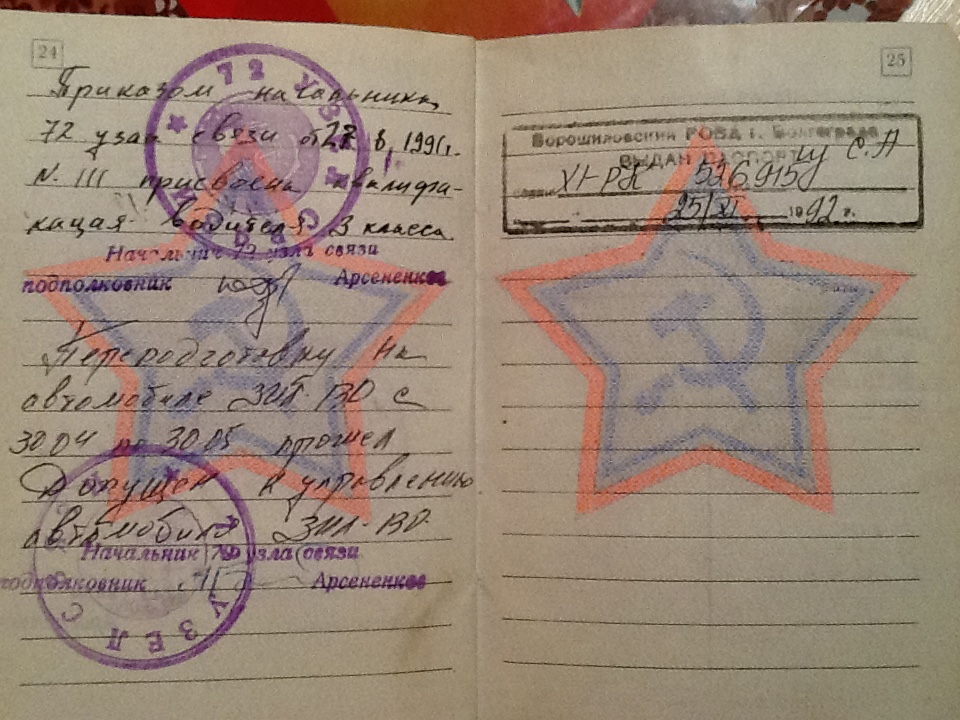 24
Приказом начальника
72 узла связи от 27.8.1991г.
№ 111 присвоена квалифи-
кация водителя 3 класса
Начальник 72 узла связи
подполковник Арсененков
Переподготовку на
автомобиле ЗИЛ-130 с
30 04 по 30 05 прошел
Допущен к управлению
автомобиля ЗИЛ-130.
Начальник 72 узла связи
подполковник Арсененков
72 УЗЕЛ СВЯЗИ
УЗЕЛ С
25
Ворошиловский РОВД г. Волгограда
ВЫДАН ПАСПОРТ
XI-РК 526915
25/XI 1992 г.